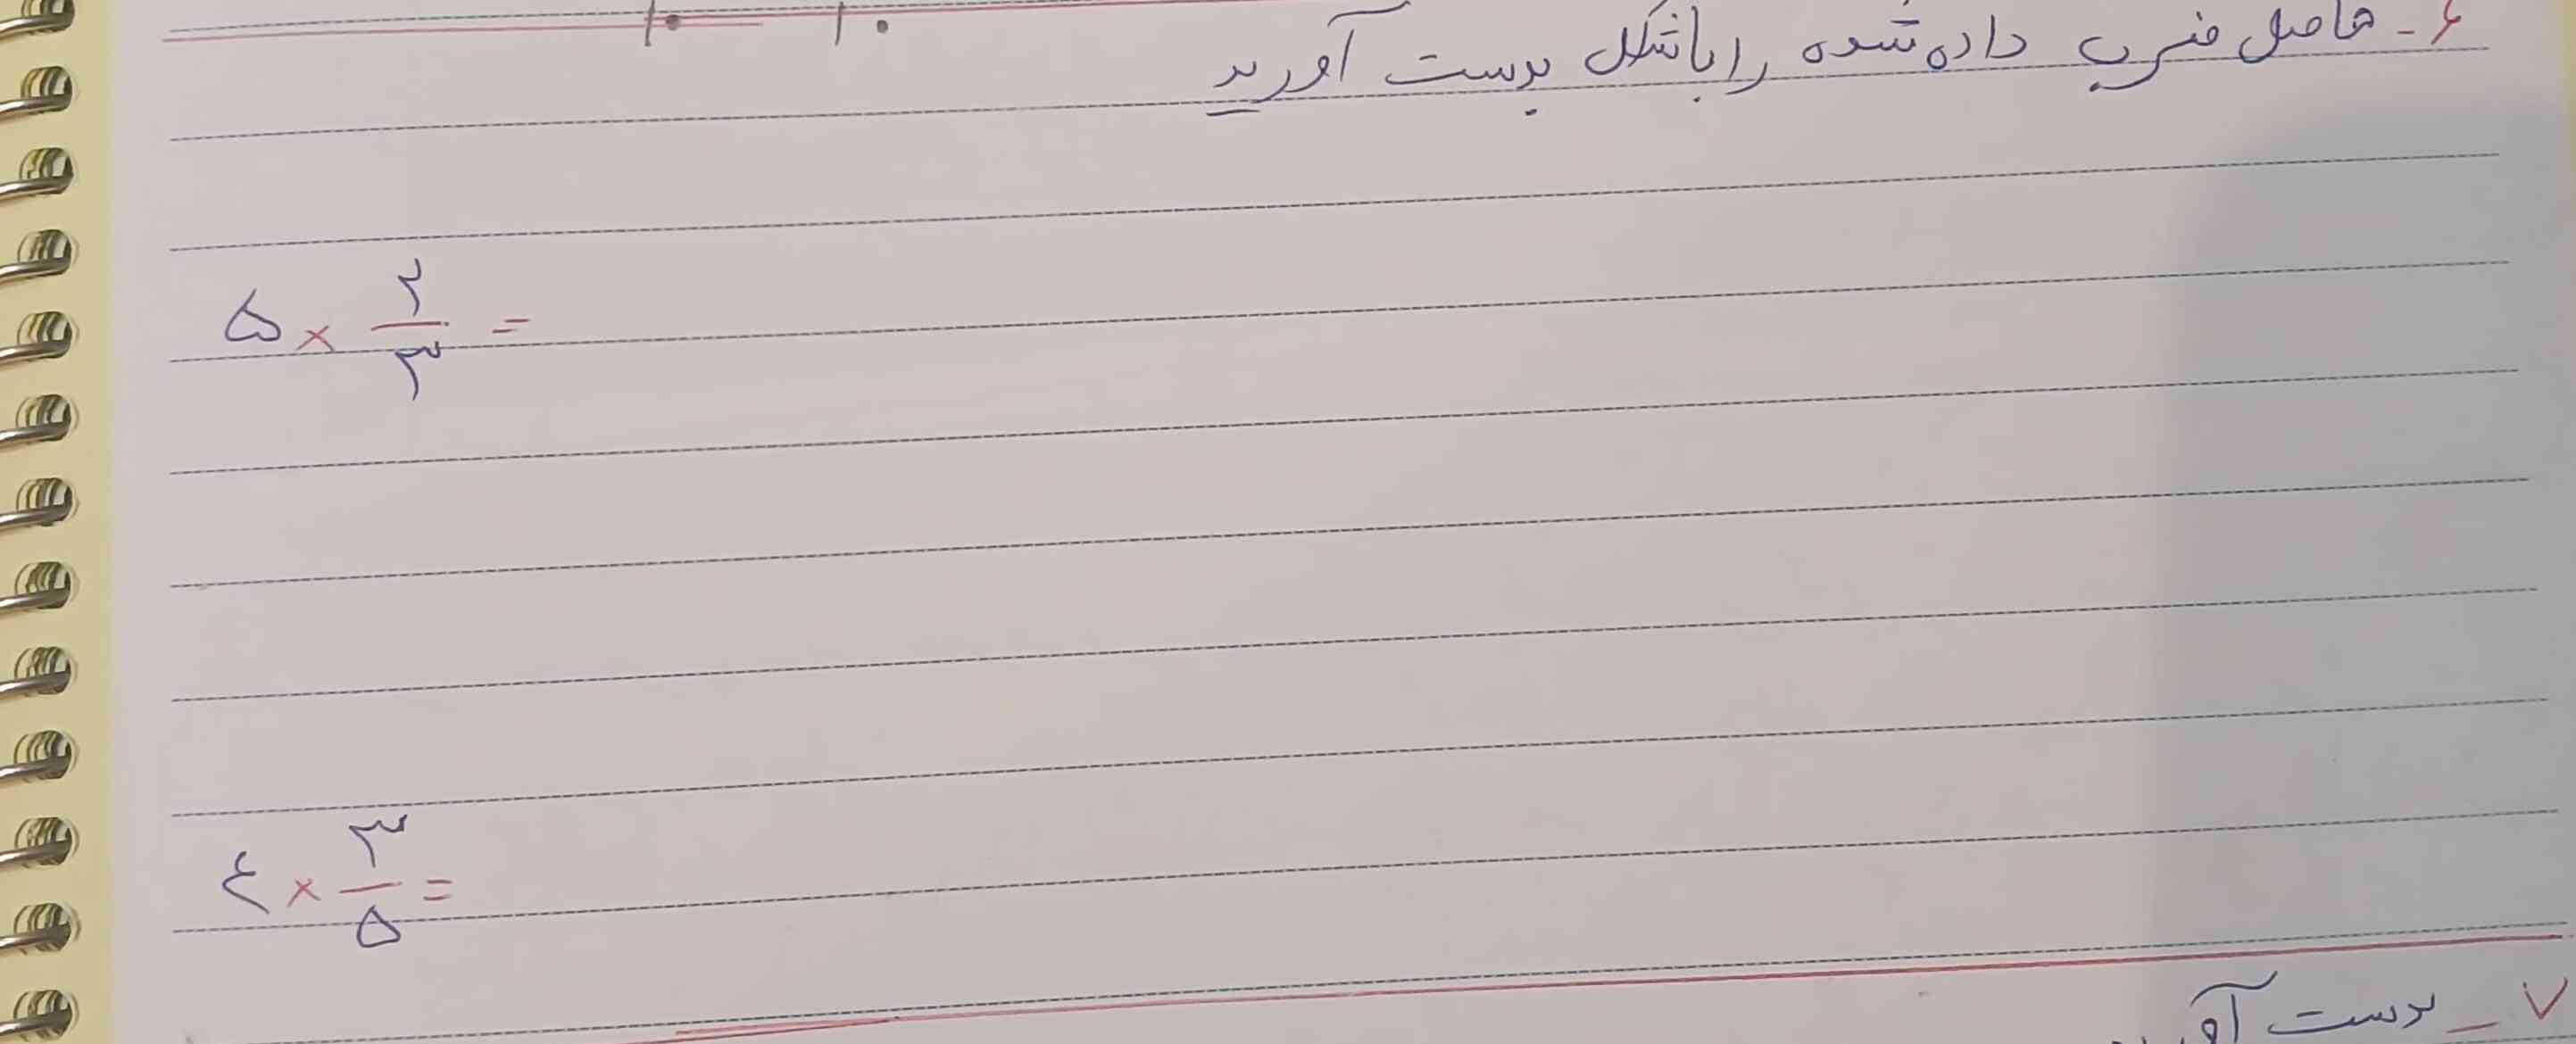 ۱۰ ۱۰
۶- حاصل ضرب داده شده را با شکل بدست آورید
۵ × ۲/۳ =
۴ × ۳/۵ =
۷ - بدست